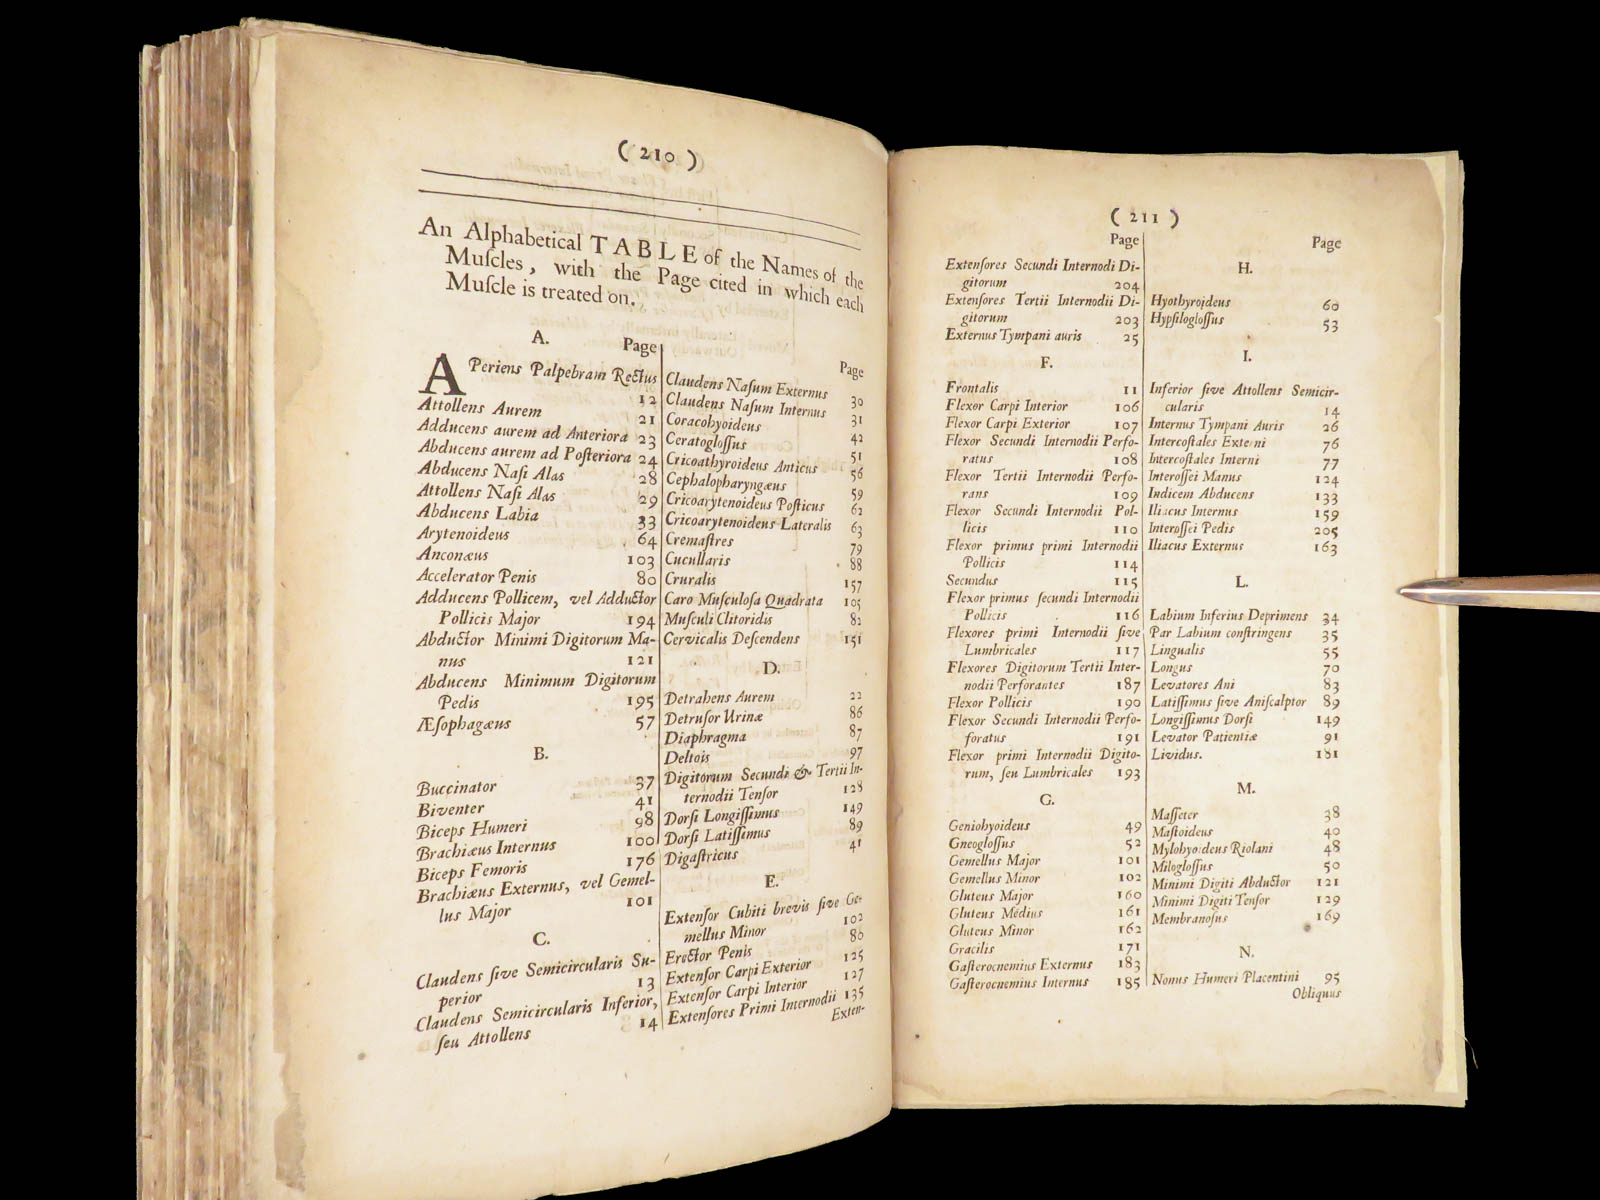 ( 210 )
An Alphabetical TABLE of the Names of the
Muſcles, with the Page cited in which each
Muſcle is treated on.
A.
Page
APeriens Palpebram Rectus
12
Attollens Aurem 21
Adducens aurem ad Anteriora 23
Abducens aurem ad Poſteriora 24
Abducens Naſi Alas 28
Attollens Naſi Alas 29
Abducens Labia 33
Arytenoideus 64
Anconæus 103
Accelerator Penis 80
Adducens Pollicem, vel Adductor
Pollicis Major 194
Abductor Minimi Digitorum Ma-
nus 121
Abducens Minimum Digitorum
Pedis 195
Æſophagæus 57
B.
Buccinator 37
Biventer 41
Biceps Humeri 98
Brachiæus Internus 100
Biceps Femoris 176
Brachiæus Externus, vel Gemel-
lus Major 101
C.
Claudens ſive Semicircularis Su-
perior 13
Claudens Semicircularis Inferior,
ſeu Attollens 14
Page
Claudens Naſum Externus 30
Claudens Naſum Internus 31
Coracohyoideus 42
Ceratogloſſus 51
Cricoathyroideus Anticus 56
Cephalopharyngæus 59
Cricoarytenoideus Poſticus 62
Cricoarytenoideus Lateralis 63
Cremaſtres 79
Cucullaris 88
Cruralis 157
Caro Muſculoſa Quadrata 105
Muſculi Clitoridis 82
Cervicalis Deſcendens 151
D.
Detrahens Aurem 22
Detruſor Urinæ 86
Diaphragma 87
Deltois 97
Digitorum Secundi & Tertii In-
ternodii Tenſor 128
Dorſi Longiſſimus 149
Dorſi Latiſſimus 89
Digaſtricus 41
E.
Extenſor Cubiti brevis ſive Ge-
mellus Minor 102
Erector Penis 80
Extenſor Carpi Exterior 125
Extenſor Carpi Interior 127
Extenſores Primi Internodii 135
Exten-
( 211 )
Page
Extenſores Secundi Internodi Di-
gitorum 204
Extenſores Tertii Internodii Di-
gitorum 203
Externus Tympani auris 25
F.
Frontalis 11
Flexor Carpi Interior 106
Flexor Carpi Exterior 107
Flexor Secundi Internodii Perfo-
ratus 108
Flexor Tertii Internodii Perfo-
rans 109
Flexor Secundi Internodii Pol-
licis 110
Flexor primus primi Internodii
Pollicis 114
Secundus 115
Flexor primus ſecundi Internodii
Pollicis 116
Flexores primi Internodii ſive
Lumbricales 117
Flexores Digitorum Tertii Inter-
nodii Perforantes 187
Flexor Pollicis 190
Flexor Secundi Internodii Perfo-
foratus 191
Flexor primi Internodii Digito-
rum, ſeu Lumbricales 193
G.
Geniohyoideus 49
Gneogloſſus 52
Gemellus Major 101
Gemellus Minor 102
Gluteus Major 160
Gluteus Médius 161
Gluteus Minor 162
Gracilis 171
Gaſterocnemius Externus 183
Gaſterocnemius Internus 185
Page
H.
Hyothyroideus 60
Hypſilogloſſus 53
I.
Inferior ſive Attollens Semicir-
cularis 14
Internus Tympani Auris 26
Intercoſtales Externi 76
Intercoſtales Interni 77
Interoſſei Manus 124
Indicem Abducens 133
Iliacus Internus 159
Interoſſei Pedis 205
Iliacus Externus 163
L.
Labium Inferius Deprimens 34
Par Labium conſtringens 35
Lingualis 55
Longus 70
Levatores Ani 83
Latiſſimus ſive Aniſcalptor 89
Longiſſimus Dorſi 149
Levator Patientiæ 91
Lividus. 181
M.
Maſſeter 38
Maſtoideus 40
Mylohyoideus Riolani 48
Milogloſſus 50
Minimi Digiti Abductor 121
Minimi Digiti Tenſor 129
Membranoſus 169
N.
Nonus Humeri Placentini 95
Obliquus